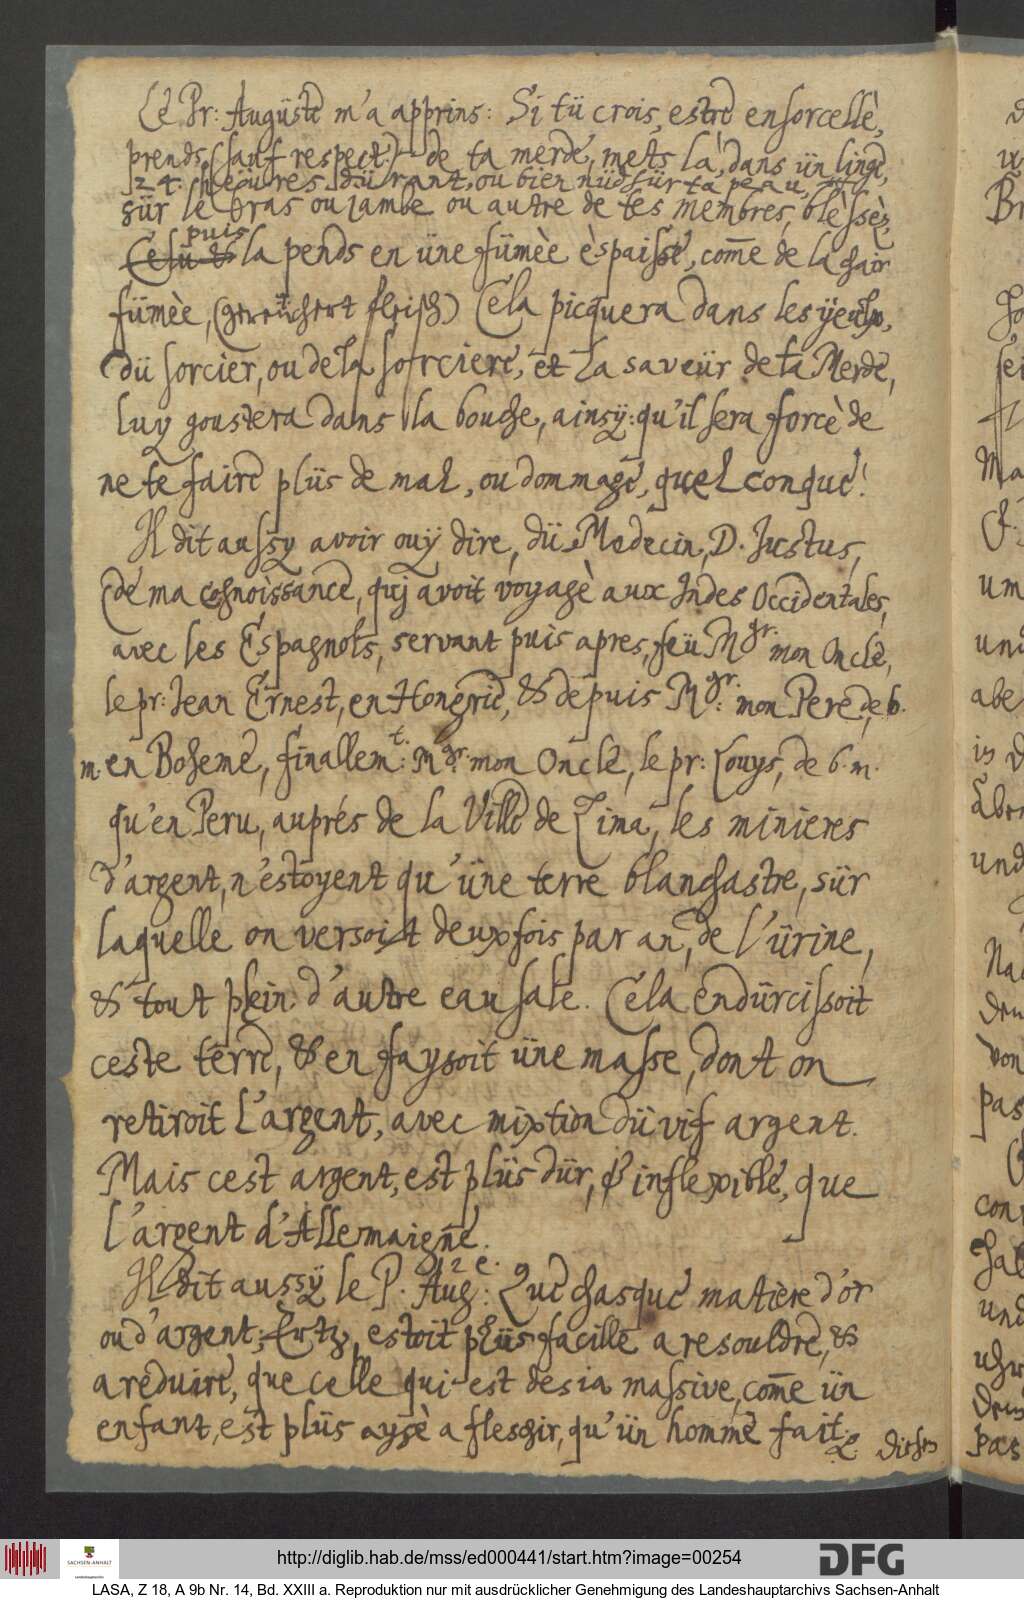 Le Pr: Augüste m'a apprins: Si tü crois, estre ensorcellè,
prends, (sauf respect:) de ta merde, mets la, dans ün linge,
24. heüres dürant, ou bien nüd sür ta peau,
sür le bras ou jambe ou autre de tes membres, blèssèz,
puis
Celü & la pends en üne fümèe èspaisse, com̄e de la chair
fümèe, (gereüchert fleisch) Cela picquera dans les ÿeulx,
dü sorcier, ou de la sorciere, et la saveür de ta Merde,
luy goustera dans la bouche, ainsÿ: qu'il sera forcè de
ne te faire plüs de mal, ou dommage, quelconque!
Il dit aussy avoir ouÿ dire, dü Medecin, D. Justus,
de ma cognoissance, quj avoit voyagè aux Indes Occidentales,
avec les Espagnols, servant puis apres, feü Mgr. mon Oncle,
le pr: Jean Ernest, en Hongrie, & depuis Mgr: mon Pere, de b.
m. en Boheme, finallemt: Mgr: mon Oncle, le pr: Louys, de b. m.
qu'en Peru, auprés de la Ville de Lima, les minieres
d'argent, n'estoyent qu'üne terre blanchastre, sür
laquelle on versoit deux fois par an, de l'ürine,
& tout plein d'autre eau sale. Cela endürcissoit
ceste terre, & en faysoit üne masse, dont on
retiroit l'argent, avec mixtion dü vif argent.
Mais cest argent, est plüs dür, & inflexible, que
l'argent d'Allemaigne.
Il dit aussÿ le P. Aug: Que chasque matiere d'or
ou d'argent, Ertz, estoit plüs facille a resouldre, &
a reduire, que celle qui est desia massive, com̄e ün
enfant, est plüs aysè a fleschir, qu'ün homme fait. &.
Dieses
http://diglib.hab.de/mss/ed000441/start.htm?image=00254
DFG
SACHSEN-ANHALT
LASA, Z 18, A 9b Nr. 14, Bd. XXIII a. Reproduktion nur mit ausdrücklicher Genehmigung des Landeshauptarchivs Sachsen-Anhalt